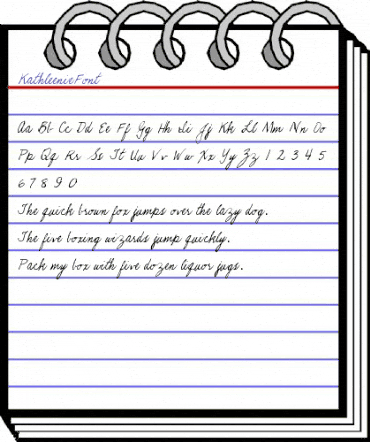 KathleenieFont
Aa Bb Cc Dd Ee Ff Gg Hh Ii Jj Kk Ll Mm Nn Oo
Pp Qq Rr Ss Tt Uu Vv Ww Xx Yy Zz 1 2 3 4 5
6 7 8 9 0
The quick brown fox jumps over the lazy dog.
The five boxing wizards jump quickly.
Pack my box with five dozen liquor jugs.